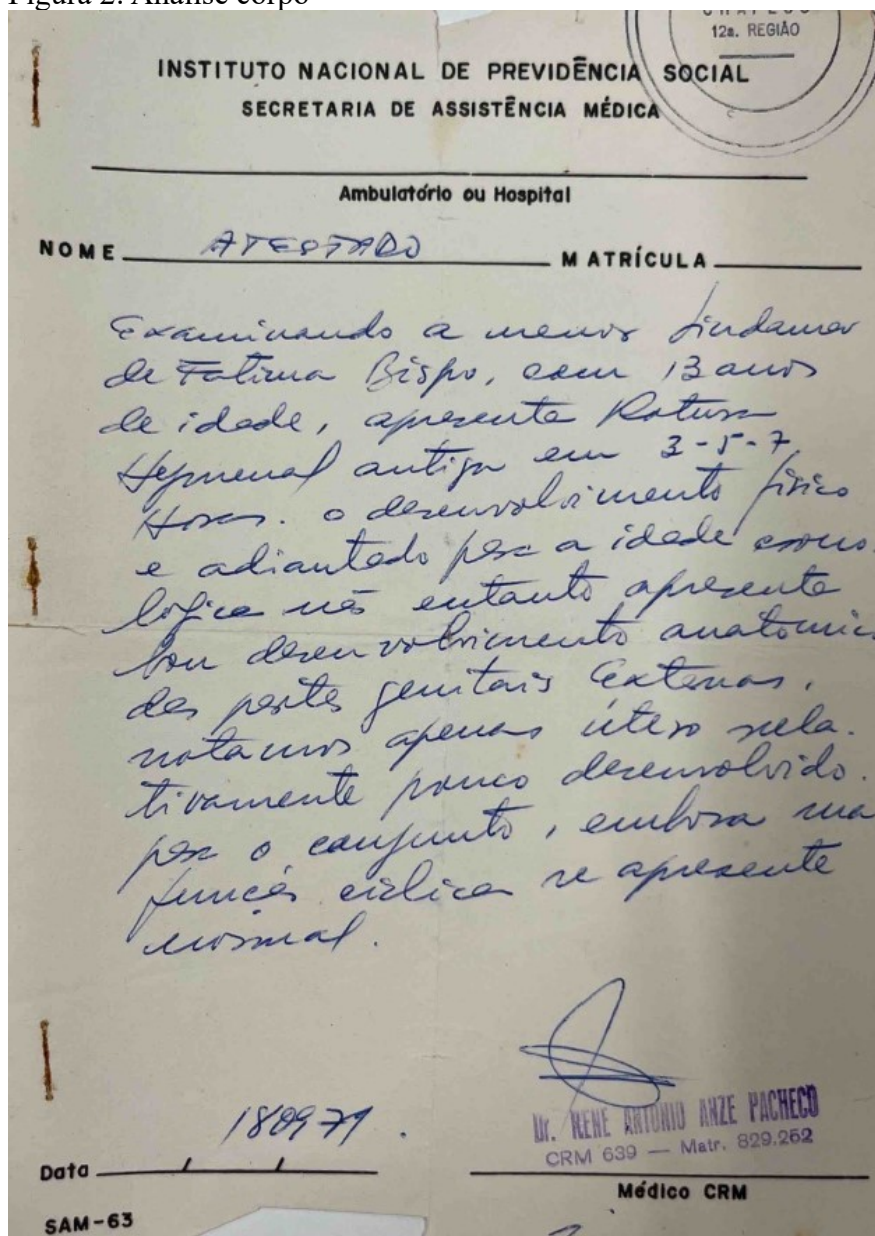 Figura 2. Análise corpo
12a. REGIÃO
INSTITUTO NACIONAL DE PREVIDÊNCIA SOCIAL
SECRETARIA DE ASSISTÊNCIA MÉDICA
Ambulatório ou Hospital
NOME ATESTADO MATRÍCULA
Examinando a menor Lindamar
de Fatima Bispo, com 13 anos
de idade, apresenta Rotura
Hymenal antiga em 3-5-7
Horas. o desenvolvimento físico
e adiantado para a idade crono
lógica nês entanto apresenta
bom desenvolvimento anatomic
das partes genitais Externas,
notamos apenas útero rela.
tivamente pouco desenvolvido.
para o conjunto, embora sua
função cíclica se apresente
normal.
180971.
Dr. RENE ANTONIO ANZE PACHECO
CRM 639 — Matr. 829.262
Data / /
Médico CRM
SAM-63